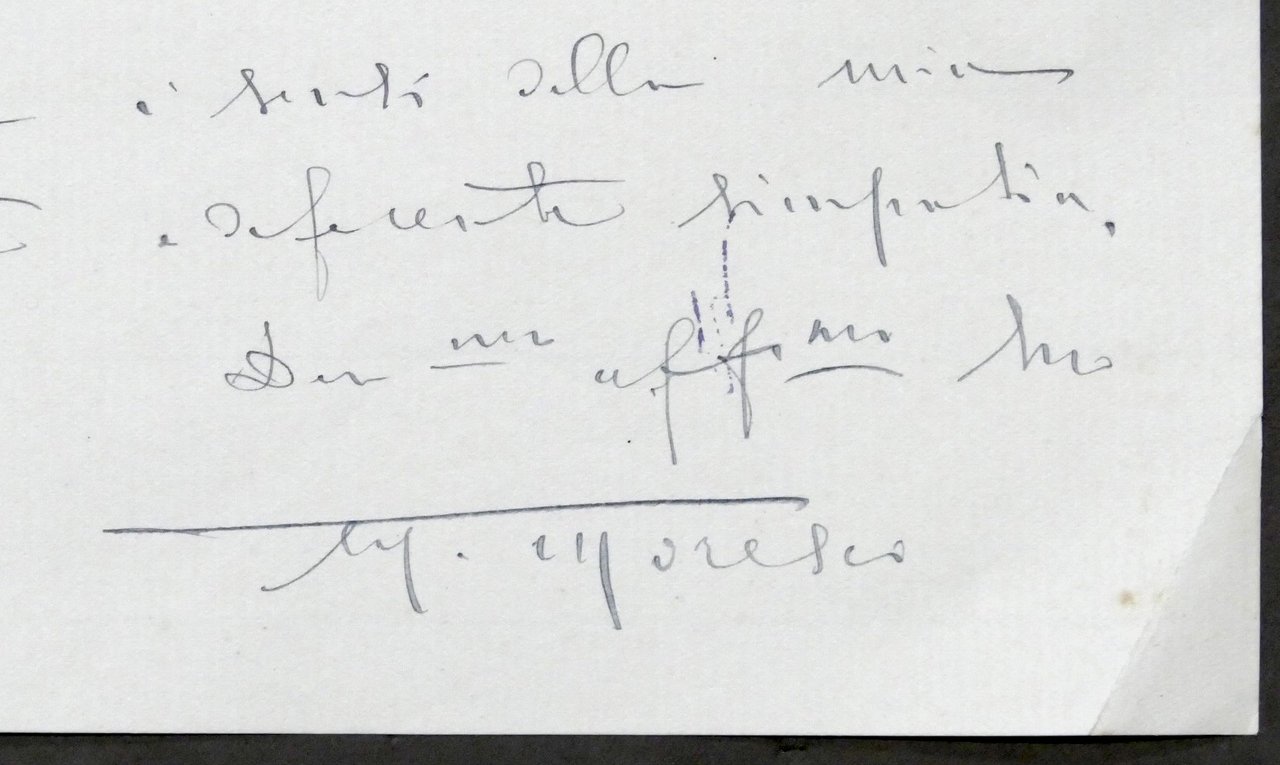 i sensi della mia
e deferente simpatia.
Dev mo aff. mo suo
M. Moresco